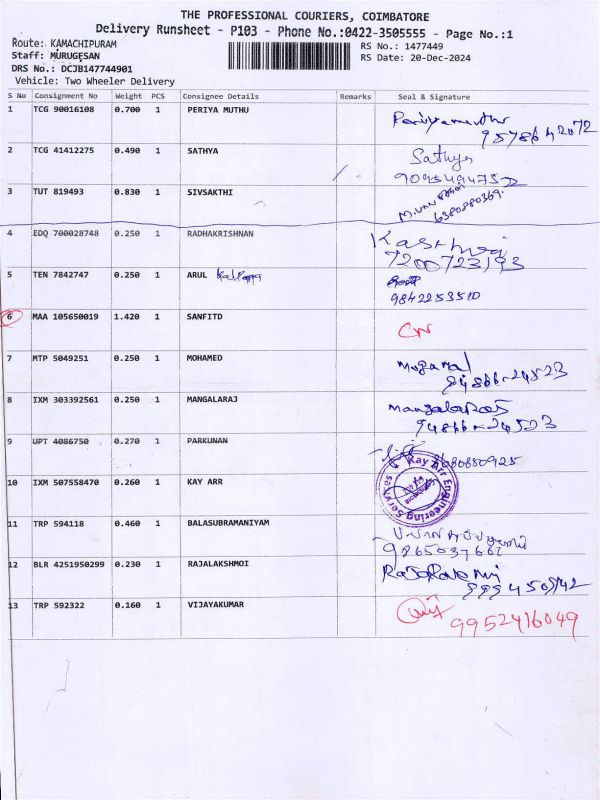 THE PROFESSIONAL COURIERS, COIMBATORE
Delivery Runsheet - P103 - Phone No.:0422-3505555 - Page No.:1
Route: KAMACHIPURAM
RS No.: 1477449
Staff: MURUGESAN
RS Date: 20-Dec-2024
DRS No.: DCJB147744901
Vehicle: Two Wheeler Delivery
S No Consignment No Weight PCS Consignee Details Remarks Seal & Signature
1 TCG 90016108 0.700 1 PERIYA MUTHU Periyamuthu
2 TCG 41412275 0.490 1 SATHYA Sathya
3 TUT 819493 0.830 1 SIVSAKTHI
6380880369.
4 EDQ 700028748 0.250 1 RADHAKRISHNAN
7200723193
5 TEN 7842747 0.250 1 ARUL
9842253510
6 MAA 105650019 1.420 1 SANFITD CN
7 MTP 5049251 0.250 1 MOHAMED
8 IXM 303392561 0.250 1 MANGALARAJ
9 UPT 4086750 0.270 1 PARKUNAN
10 IXM 507558470 0.260 1 KAY ARR Kay Arr Engineering Services
11 TRP 594118 0.460 1 BALASUBRAMANIYAM
12 BLR 4251950299 0.230 1 RAJALAKSHMOI
13 TRP 592322 0.160 1 VIJAYAKUMAR
9952416049